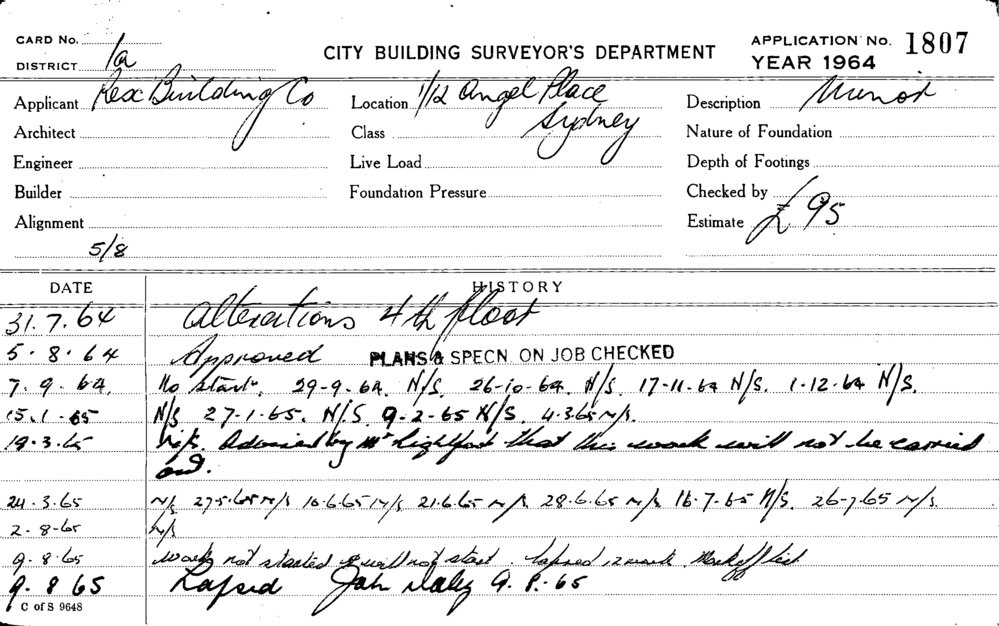 CARD No.
DISTRICT 1a
CITY BUILDING SURVEYOR'S DEPARTMENT
APPLICATION No. 1807
YEAR 1964
Applicant Rex Building Co
Location 1/12 Angel Place
Sydney
Description Minor
Architect
Class
Nature of Foundation
Engineer
Live Load
Depth of Footings
Builder
Foundation Pressure
Checked by
Alignment
Estimate £ 95
5/8
DATE HISTORY
31.7.64 Alterations 4th floor
5.8.64 Approved PLANS & SPECN. ON JOB CHECKED
7.9.64. No start. 29-9-64. N/S. 26-10-64. N/S. 17-11-64 N/S. 1-12-64 N/S.
15.1.65 N/S 27-1-65. N/S. 9-2-65 N/S. 4.3.65 N/S.
19.3.65 N/S. Advised by Mr Lightfoot that this work will not be carried
out.
24.3.65 N/S. 27.5.65 N/S 10.6.65 N/S 21.6.65 N/S. 28.6.65 N/S. 16.7.65 N/S. 26-7.65 N/S.
2.8.65 N/S
9.8.65 Work not started & will not start. Lapsed work. Mark off list
9.8.65 Lapsed John 9.8.65
C of S 9648